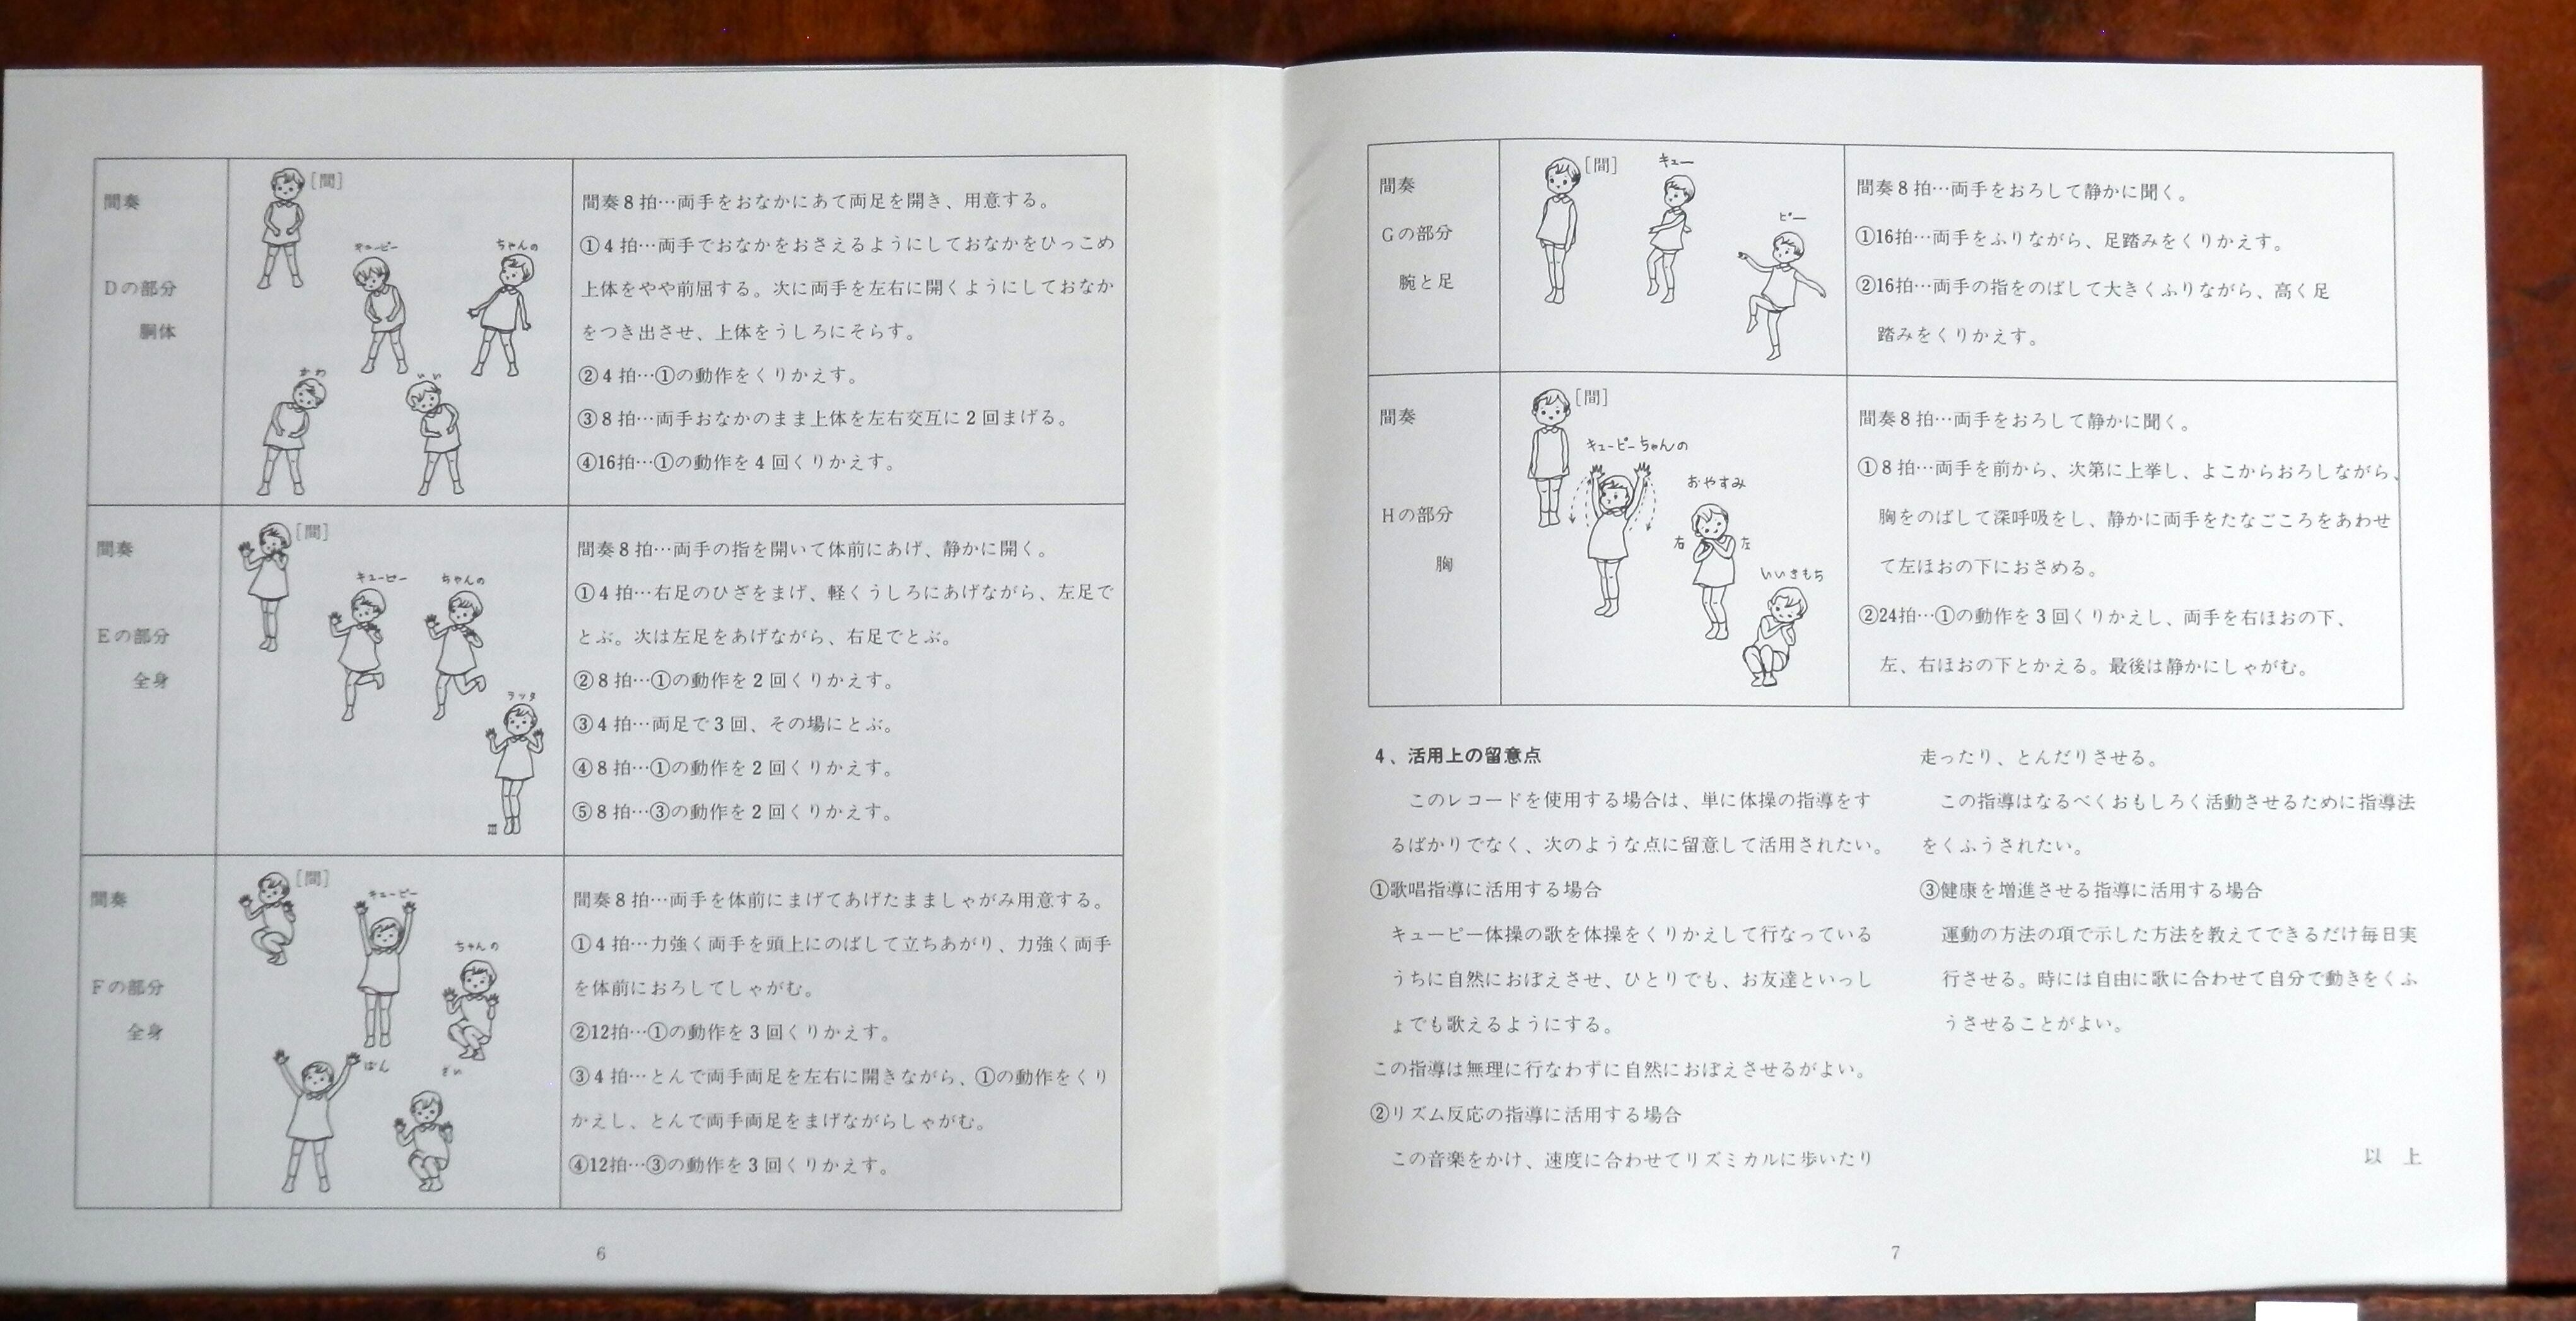 間奏
Dの部分
胴体
[間]
キューピー
ちゃんの
かわ
いい
間奏8拍…両手をおなかにあて両足を開き、用意する。
①4拍…両手でおなかをおさえるようにしておなかをひっこめ
上体をやや前屈する。次に両手を左右に開くようにしておなか
をつき出させ、上体をうしろにそらす。
②4拍…①の動作をくりかえす。
③8拍…両手おなかのまま上体を左右交互に2回まげる。
④16拍…①の動作を4回くりかえす。
間奏
Eの部分
全身
[間]
キューピー
ちゃんの
ラッタ
間奏8拍…両手の指を開いて体前にあげ、静かに開く。
①4拍…右足のひざをまげ、軽くうしろにあげながら、左足で
とぶ。次は左足をあげながら、右足でとぶ。
②8拍…①の動作を2回くりかえす。
③4拍…両足で3回、その場にとぶ。
④8拍…①の動作を2回くりかえす。
⑤8拍…③の動作を2回くりかえす。
間奏
Fの部分
全身
[間]
キューピー
ちゃんの
ばん
ざい
間奏8拍…両手を体前にまげてあげたまましゃがみ用意する。
①4拍…力強く両手を頭上にのばして立ちあがり、力強く両手
を体前におろしてしゃがむ。
②12拍…①の動作を3回くりかえす。
③4拍…とんで両手両足を左右に開きながら、①の動作をくり
かえし、とんで両手両足をまげながらしゃがむ。
④12拍…③の動作を3回くりかえす。
6
間奏
Gの部分
腕と足
[間]
キュー
ピー
間奏8拍…両手をおろして静かに聞く。
①16拍…両手をふりながら、足踏みをくりかえす。
②16拍…両手の指をのばして大きくふりながら、高く足
踏みをくりかえす。
間奏
Hの部分
胸
[間]
キューピーちゃんの
おやすみ
右
左
いいきもち
間奏8拍…両手をおろして静かに聞く。
①8拍…両手を前から、次第に上挙し、よこからおろしながら、
胸をのばして深呼吸をし、静かに両手をたなごころをあわせ
て左ほおの下におさめる。
②24拍…①の動作を3回くりかえし、両手を右ほおの下、
左、右ほおの下とかえる。最後は静かにしゃがむ。
4、活用上の留意点
このレコードを使用する場合は、単に体操の指導をす
るばかりでなく、次のような点に留意して活用されたい。
①歌唱指導に活用する場合
キューピー体操の歌を体操をくりかえして行なっている
うちに自然におぼえさせ、ひとりでも、お友達といっし
ょでも歌えるようにする。
この指導は無理に行なわずに自然におぼえさせるがよい。
②リズム反応の指導に活用する場合
この音楽をかけ、速度に合わせてリズミカルに歩いたり
走ったり、とんだりさせる。
この指導はなるべくおもしろく活動させるために指導法
をくふうされたい。
③健康を増進させる指導に活用する場合
運動の方法の項で示した方法を教えてできるだけ毎日実
行させる。時には自由に歌に合わせて自分で動きをくふ
うさせることがよい。
以 上
7